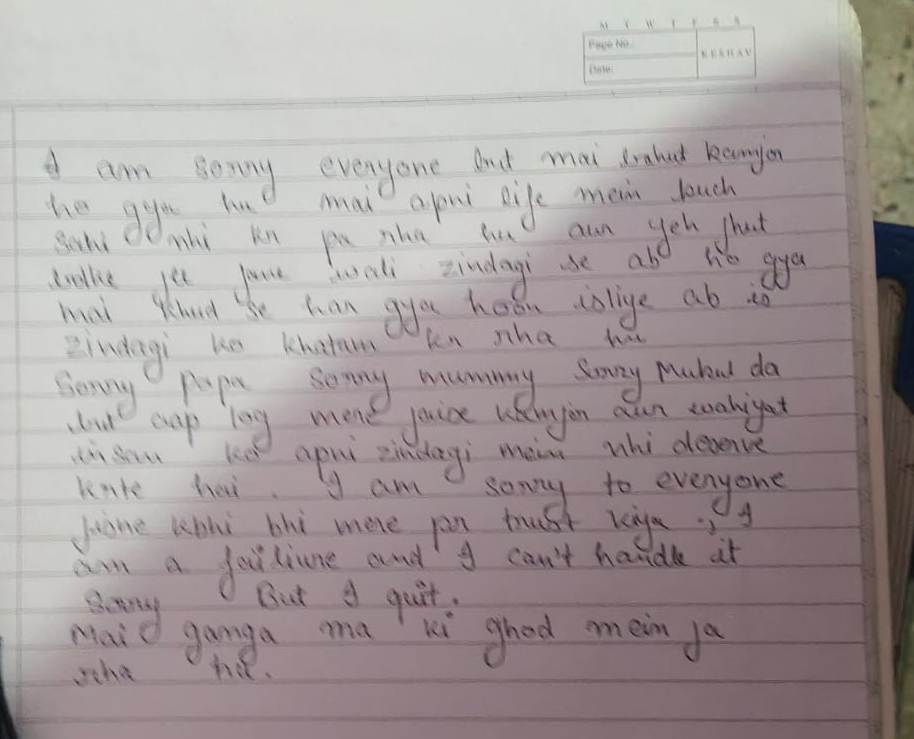 M T W T F S S
Page No.:
KESHAV
Date:
I am sorry everyone but mai bahut kamjor
ho gya hu mai apni life mein kuch
sahi nhi kr pa rha hu aur yeh jhut
bolke jee jane wali zindagi se ab ho gya
mai khud se har gya hoon isliye ab is
zindagi ko khatam kr rha hu
Sorry papa sorry mummy sorry Mukul da
but aap log mere jaise kamjor aur wahiyat
insan ko apni zindagi mein nhi deserve
krte hai. I am sorry to everyone
jisne kbhi bhi mere pr trust kiya , I
am a failiure and I can't handle it
sorry But I quit.
Mai ganga ma ki ghod mein ja
rha hu.